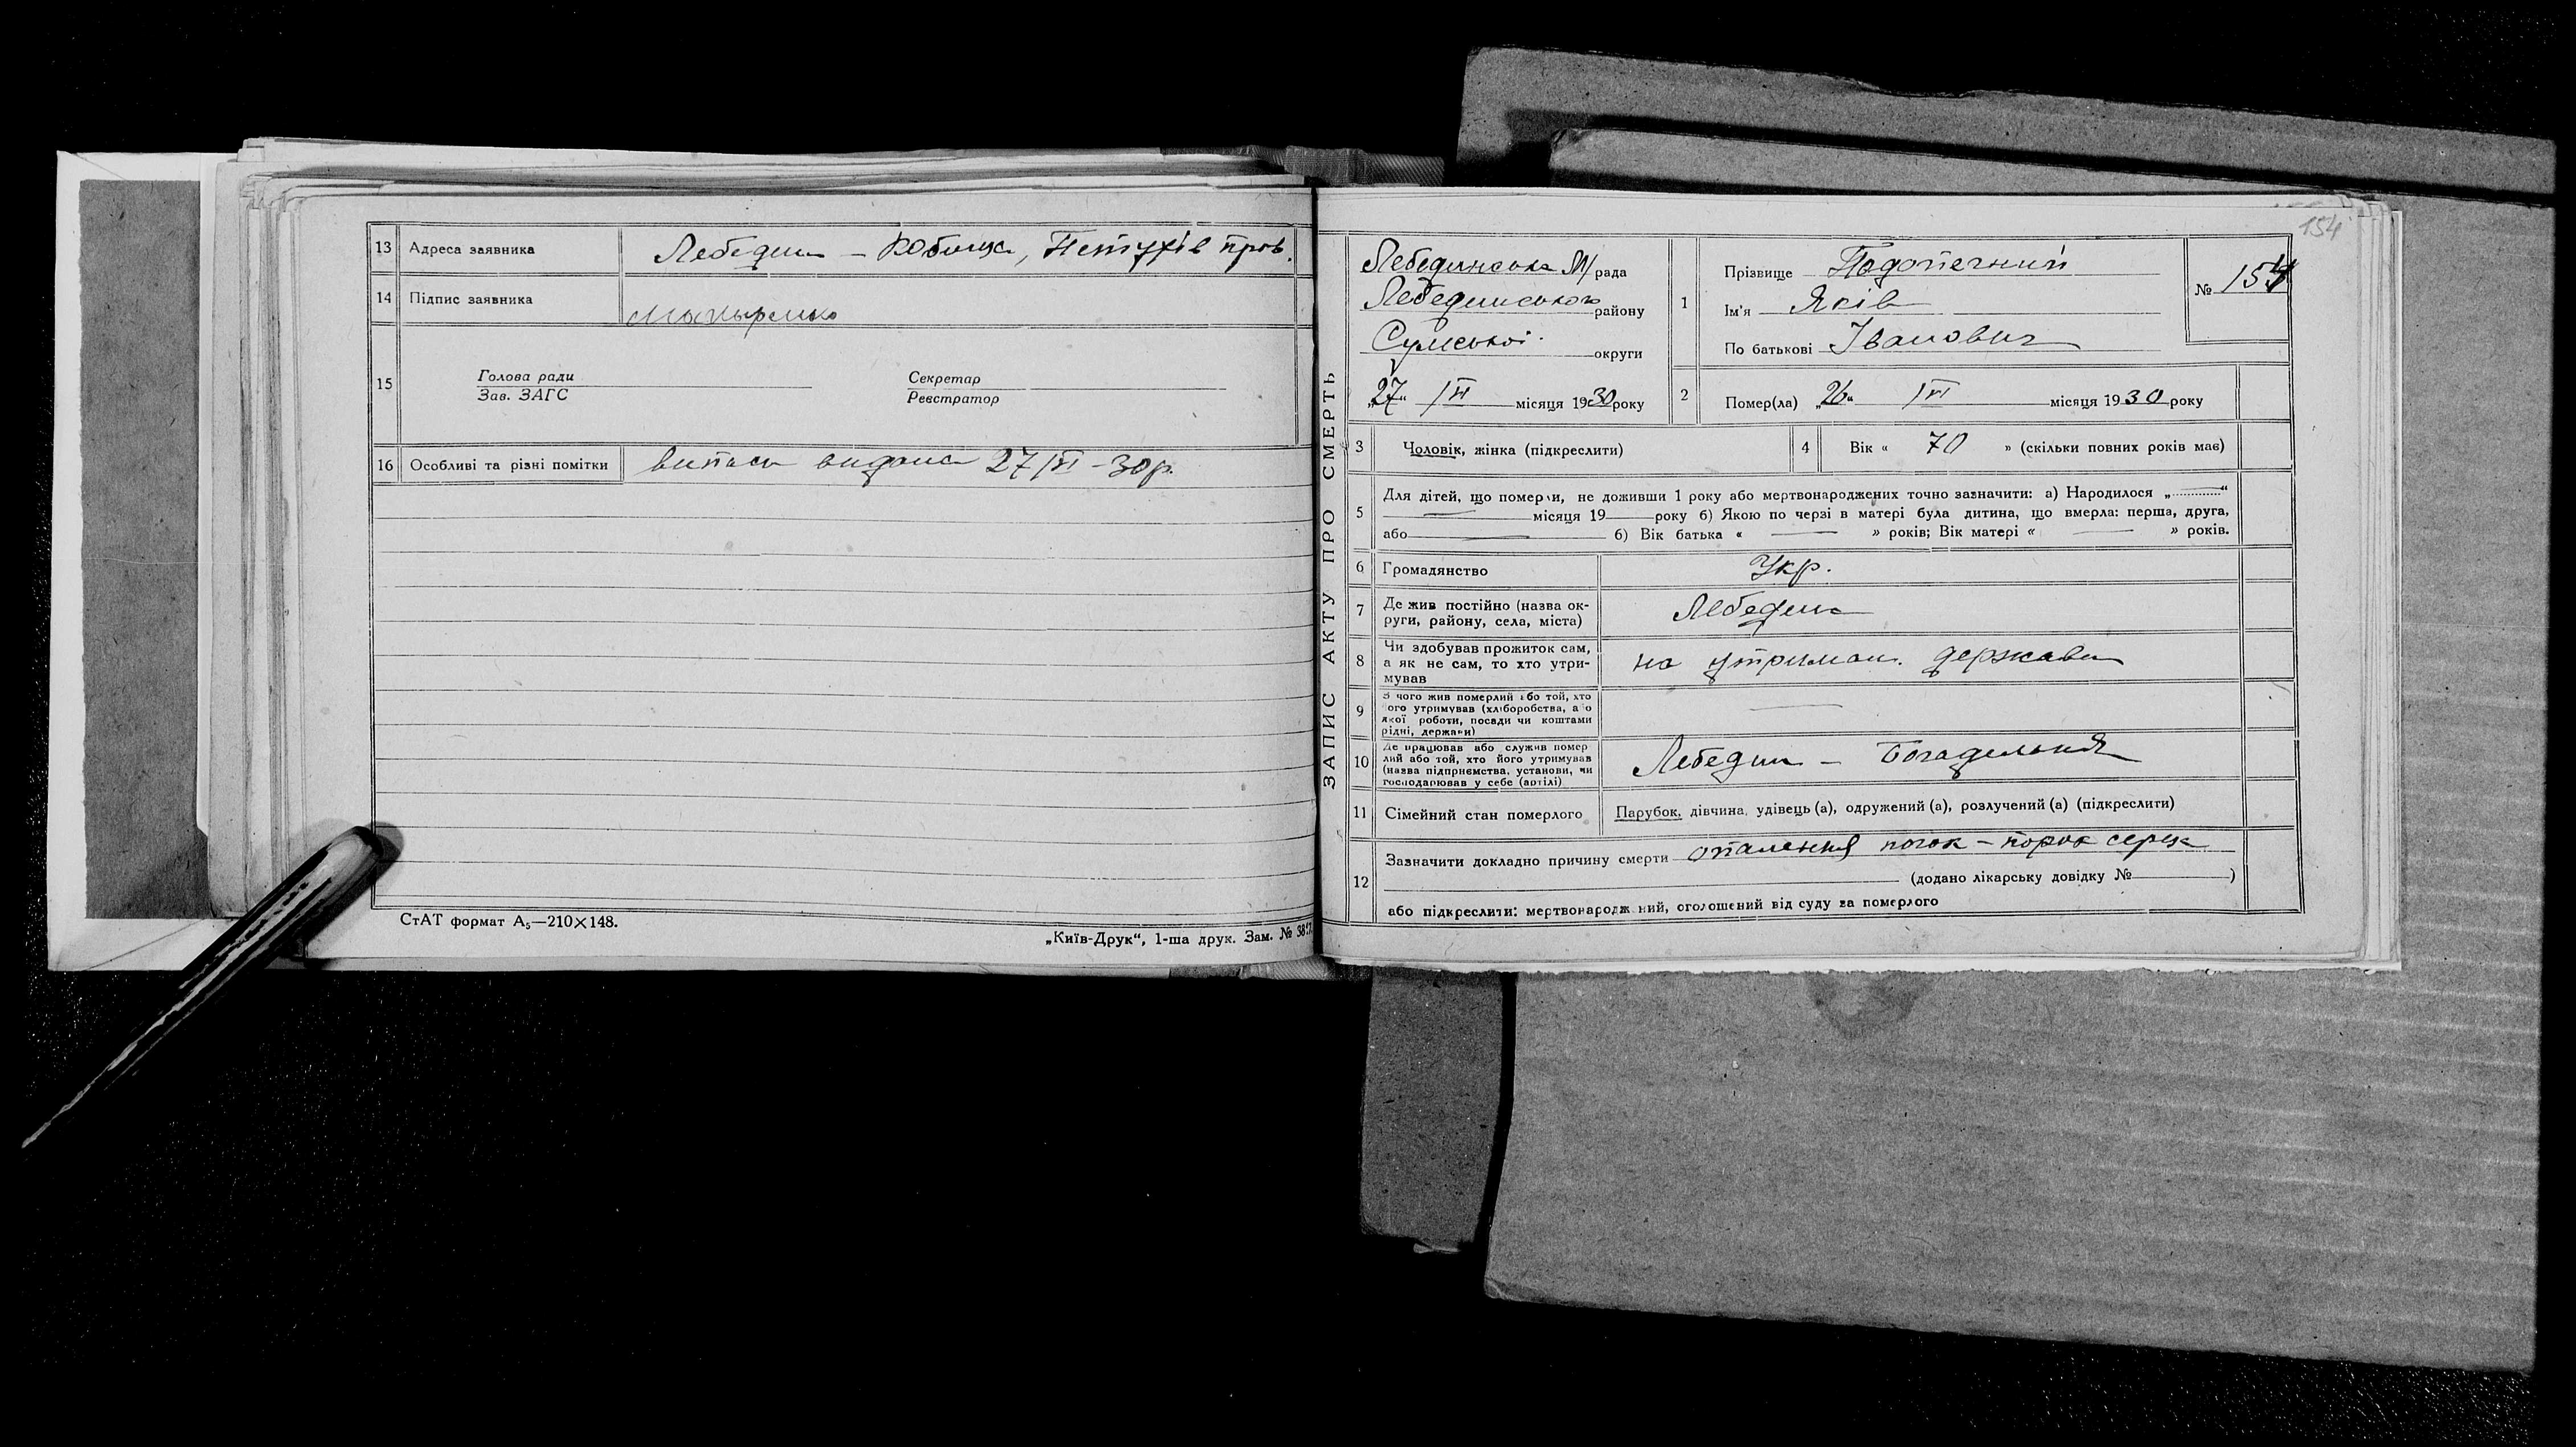 13 Адреса заявника Лебедин – Кобижа, Петухів пров.
14 Підпис заявника
15 Голова ради Секретар
Зав. ЗАГС Реєстратор
16 Особливі та різні помітки випись видана 27/VI – 30 р.
СтАТ формат А₅—210×148.
„Київ-Друк“, 1-ша друк. Зам. №
154
ЗАПИС АКТУ ПРО СМЕРТЬ
Лебединська М/рада
Лебединського району
Сумської округи
„27“ /VI місяця 1930 року
1 Прізвище Подопєчний
Ім'я Яків
По батькові Іванович
№ 154
2 Помер(ла) „26“ /VI місяця 1930 року
3 Чоловік, жінка (підкреслити)
4 Вік « 70 » (скільки повних років має)
5 Для дітей, що померли, не доживши 1 року або мертвонароджених точно зазначити: а) Народилося „ “
місяця 19 року б) Якою по черзі в матері була дитина, що вмерла: перша, друга,
або б) Вік батька « » років; Вік матері « » років.
6 Громадянство Укр.
7 Де жив постійно (назва ок-
руги, району, села, міста) Лебедин
8 Чи здобував прожиток сам,
а як не сам, то хто утри-
мував на утриман. держави
9 З чого жив померлий або той, хто
його утримував (хліборобства, або
якої роботи, посади чи коштами
рідні, держави)
10 Де працював або служив помер
лий або той, хто його утримував
(назва підприємства, установи, чи
господарював у себе (артілі) Лебедин – Богадельня
11 Сімейний стан померлого Парубок, дівчина, удівець (а), одружений (а), розлучений (а) (підкреслити)
12 Зазначити докладно причину смерти опалення почок – порок серця
(додано лікарську довідку № )
або підкреслити: мертвонароджений, оголошений від суду за померлого